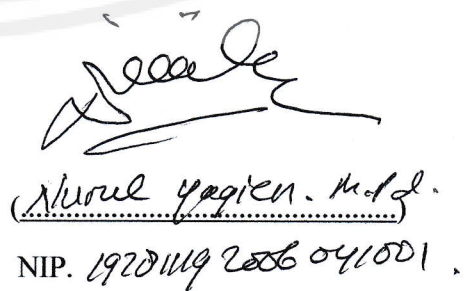 (Nurul Yaqien. M.Pd.)
NIP. 19781119 2006 041001.